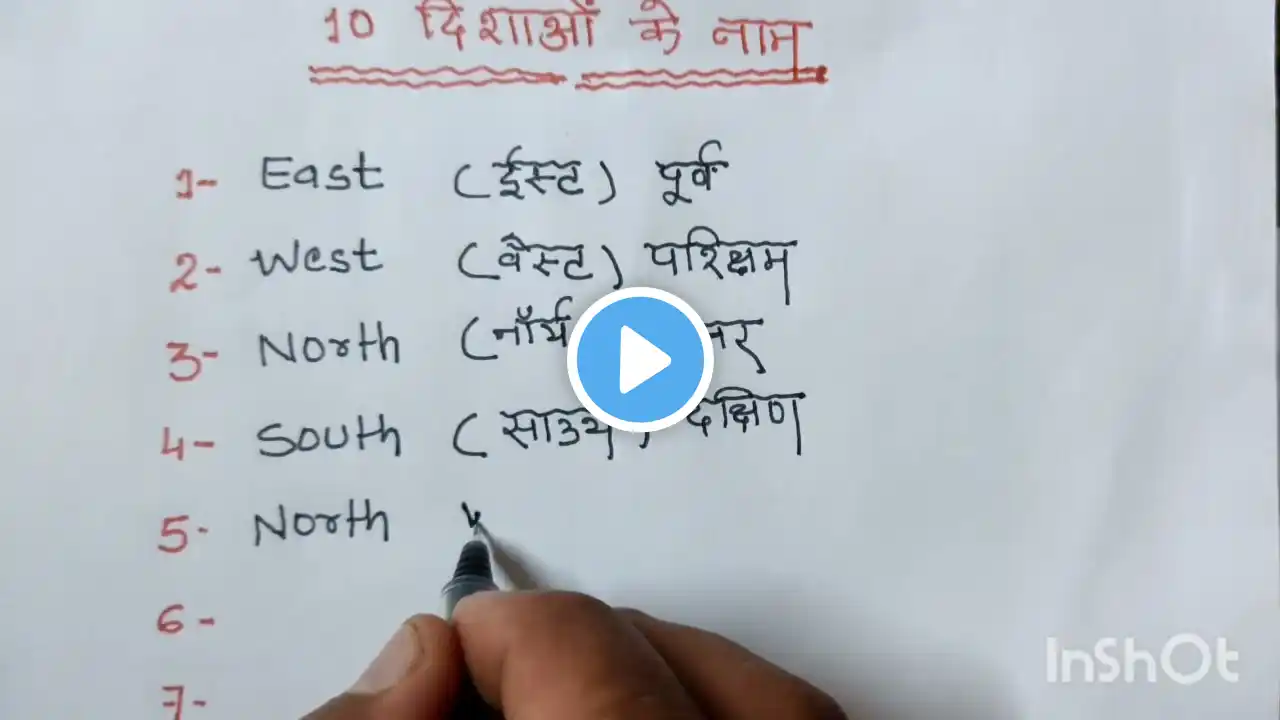 10 दिशाओं के नाम
1- East (ईस्ट) पूर्व
2- West (वैस्ट) पश्चिम
3- North (नॉर्थ
4- South (साउथ) दक्षिण
5- North
6-
7-
InShOt